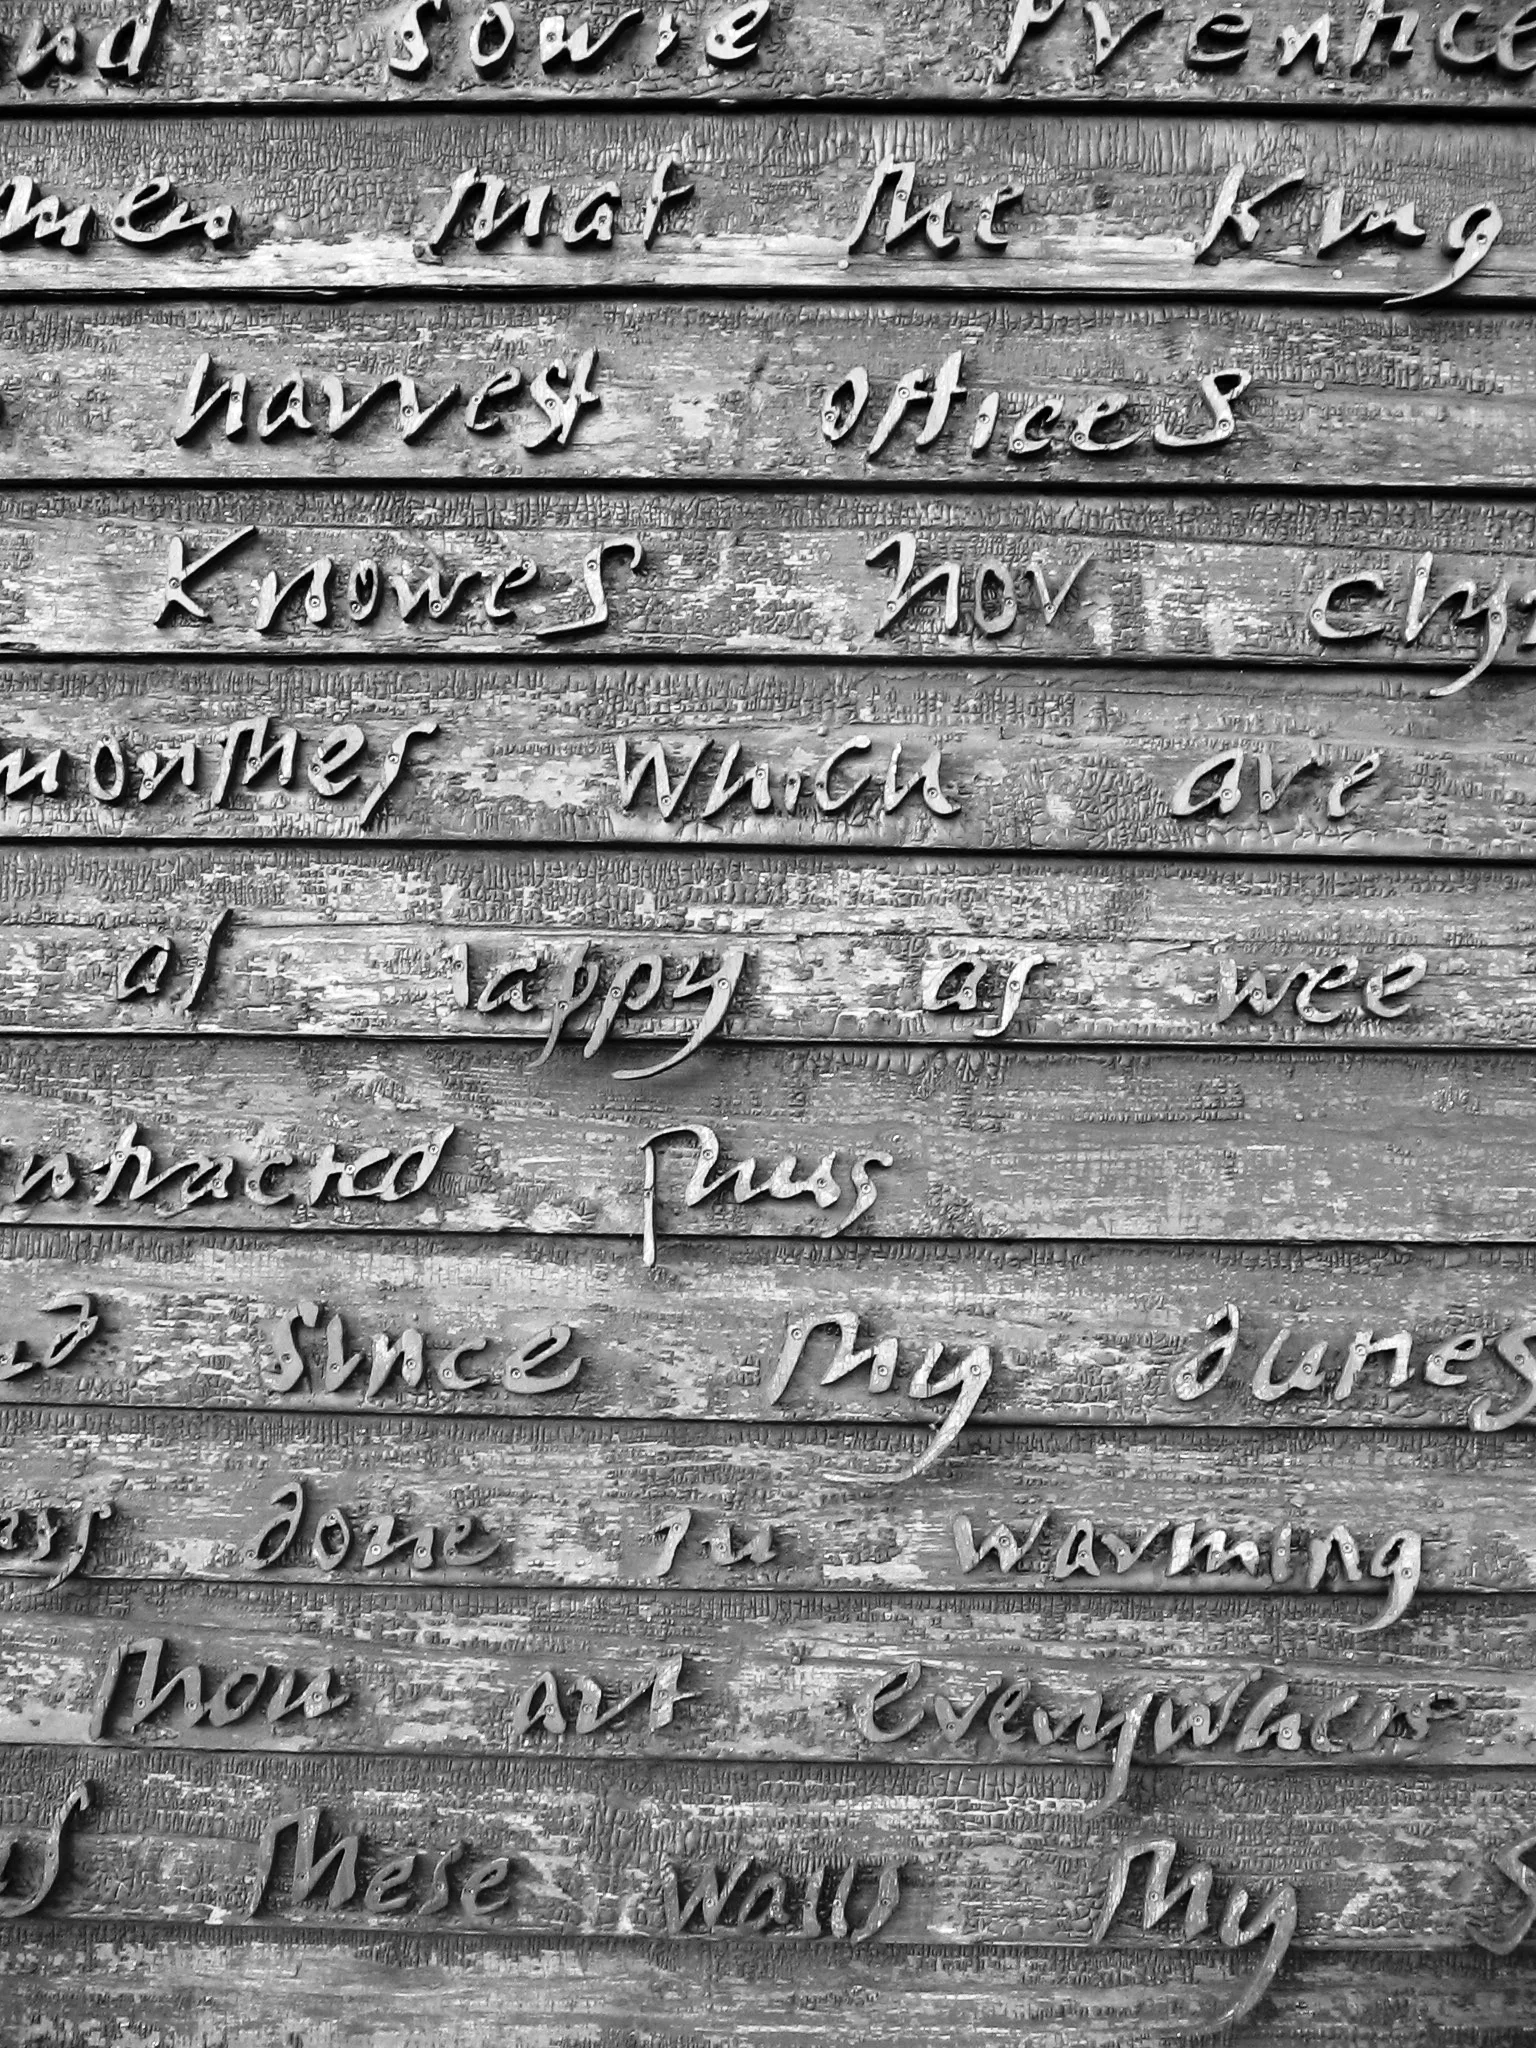 and sowre prentices
men that the King
harvest offices
Knowes nor clym
monthes which are
al happy as wee
ntracted thus
and since thy duties
ays done in warming
thou art everywhere
us these walls thy S